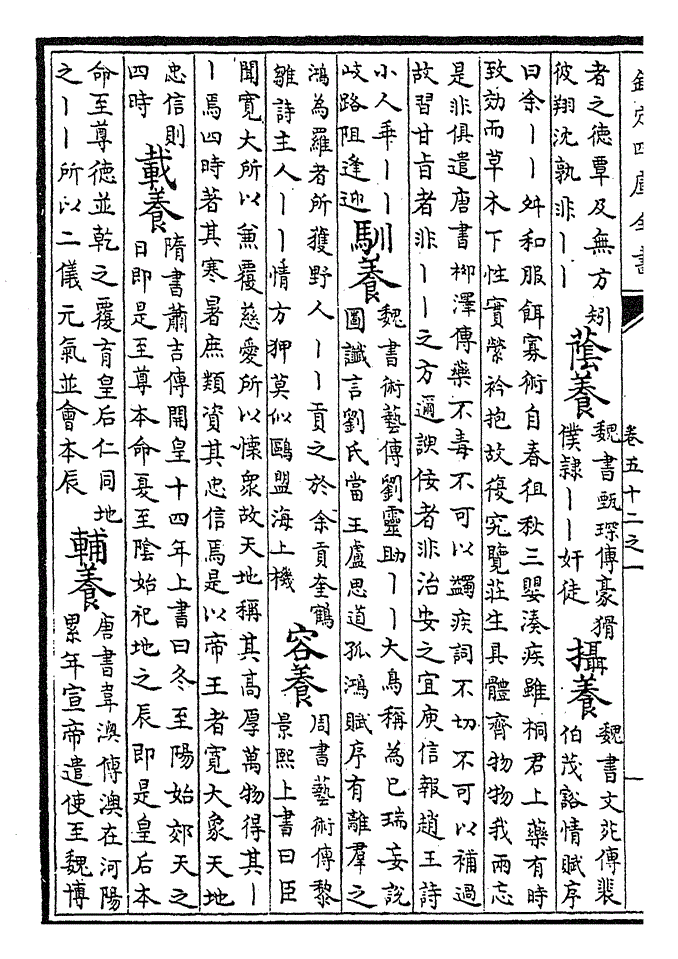 欽定四庫全書
卷五十二之一
一
者之徳覃及無方矧
彼翔沈孰非丨丨
蔭養
魏書甄琛傳豪猾
僕隷丨丨奸徒
攝養
魏書文苑傳裴
伯茂豁情賦序
曰余丨丨舛和服餌寡術自春徂秋三嬰湊疾雖桐君上藥有時
致効而草木下性實縈衿抱故復究覽莊生具體齊物物我兩忘
是非俱遣唐書柳澤傳藥不毒不可以蠲疾詞不切不可以補過
故習甘旨者非丨丨之方邇諛佞者非治安之宜庾信報趙王詩
小人乖丨丨
岐路阻逢迎
馴養
魏書術藝傳劉靈助丨丨大鳥稱為已瑞妄說
圖讖言劉氏當王盧思道孤鴻賦序有離羣之
鴻為羅者所獲野人丨丨貢之於余貢奎鶴
雛詩主人丨丨情方狎莫似鷗盟海上機
容養
周書藝術傳黎
景熙上書曰臣
聞寬大所以兼覆慈愛所以懷衆故天地稱其高厚萬物得其丨
丨焉四時著其寒暑庶類資其忠信焉是以帝王者寬大象天地
忠信則
四時
載養
隋書蕭吉傳開皇十四年上書曰冬至陽始郊天之
日即是至尊本命憂至陰始祀地之辰即是皇后本
命至尊徳並乾之覆育皇后仁同地
之丨丨所以二儀元氣並會本辰
輔養
唐書韋澳傳澳在河陽
累年宣帝遣使至魏博